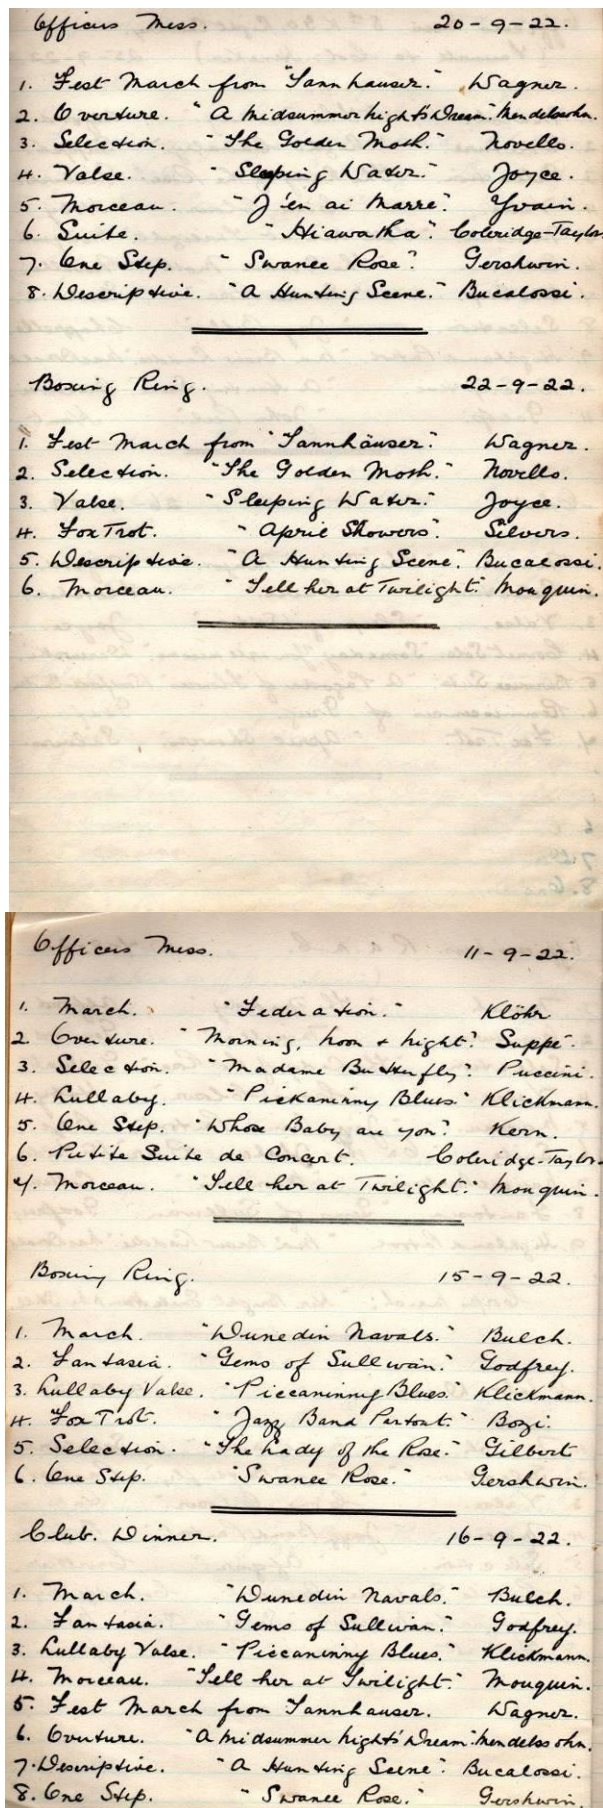 Officers Mess. 20-9-22.
1. Fest March from "Tannhauser." Wagner.
2. Overture. "A Midsummer night's Dream." Mendelssohn.
3. Selection. "The Golden Moth." Novello.
4. Valse. "Sleeping Water." Joyce.
5. Morceau. "J'en ai Marre". Yvain.
6. Suite. "Hiawatha". Coleridge-Taylor
7. One Step. "Swanee Rose". Gershwin.
8. Descriptive. "A Hunting Scene." Bucalossi.
Boxing Ring. 22-9-22.
1. Fest March from "Tannhäuser." Wagner.
2. Selection. "The Golden Moth." Novello.
3. Valse. "Sleeping Water." Joyce.
4. Fox Trot. "April Showers". Silvers.
5. Descriptive. "A Hunting Scene". Bucalossi.
6. Morceau. "Tell her at Twilight." Mouquin.
Officers Mess. 11-9-22.
1. March. "Federation." Klöhr
2. Overture. "Morning, noon + night". Suppé.
3. Selection. "Madame Butterfly". Puccini.
4. Lullaby. "Pickaninny Blues." Klickmann.
5. One Step. "Whose Baby are you". Kern.
6. Petite Suite de Concert. Coleridge-Taylor.
7. Morceau. "Tell her at Twilight." Mouquin.
Boxing Ring. 15-9-22.
1. March. "Dunedin Navals." Bulch.
2. Fantasia. "Gems of Sullivan." Godfrey.
3. Lullaby Valse. "Piccaninny Blues." Klickmann.
4. Fox Trot. "Jazz Band Partout." Bozi.
5. Selection. "The Lady of the Rose." Gilbert
6. One Step. "Swanee Rose." Gershwin.
Club. Dinner. 16-9-22.
1. March. "Dunedin Navals." Bulch.
2. Fantasia. "Gems of Sullivan." Godfrey.
3. Lullaby Valse. "Piccaninny Blues." Klickmann.
4. Morceau. "Tell her at Twilight." Mouquin.
5. Fest March from Tannhauser. Wagner.
6. Overture. "A Midsummer night's Dream." Mendelssohn.
7. Descriptive. "A Hunting Scene." Bucalossi.
8. One Step. "Swanee Rose." Gershwin.